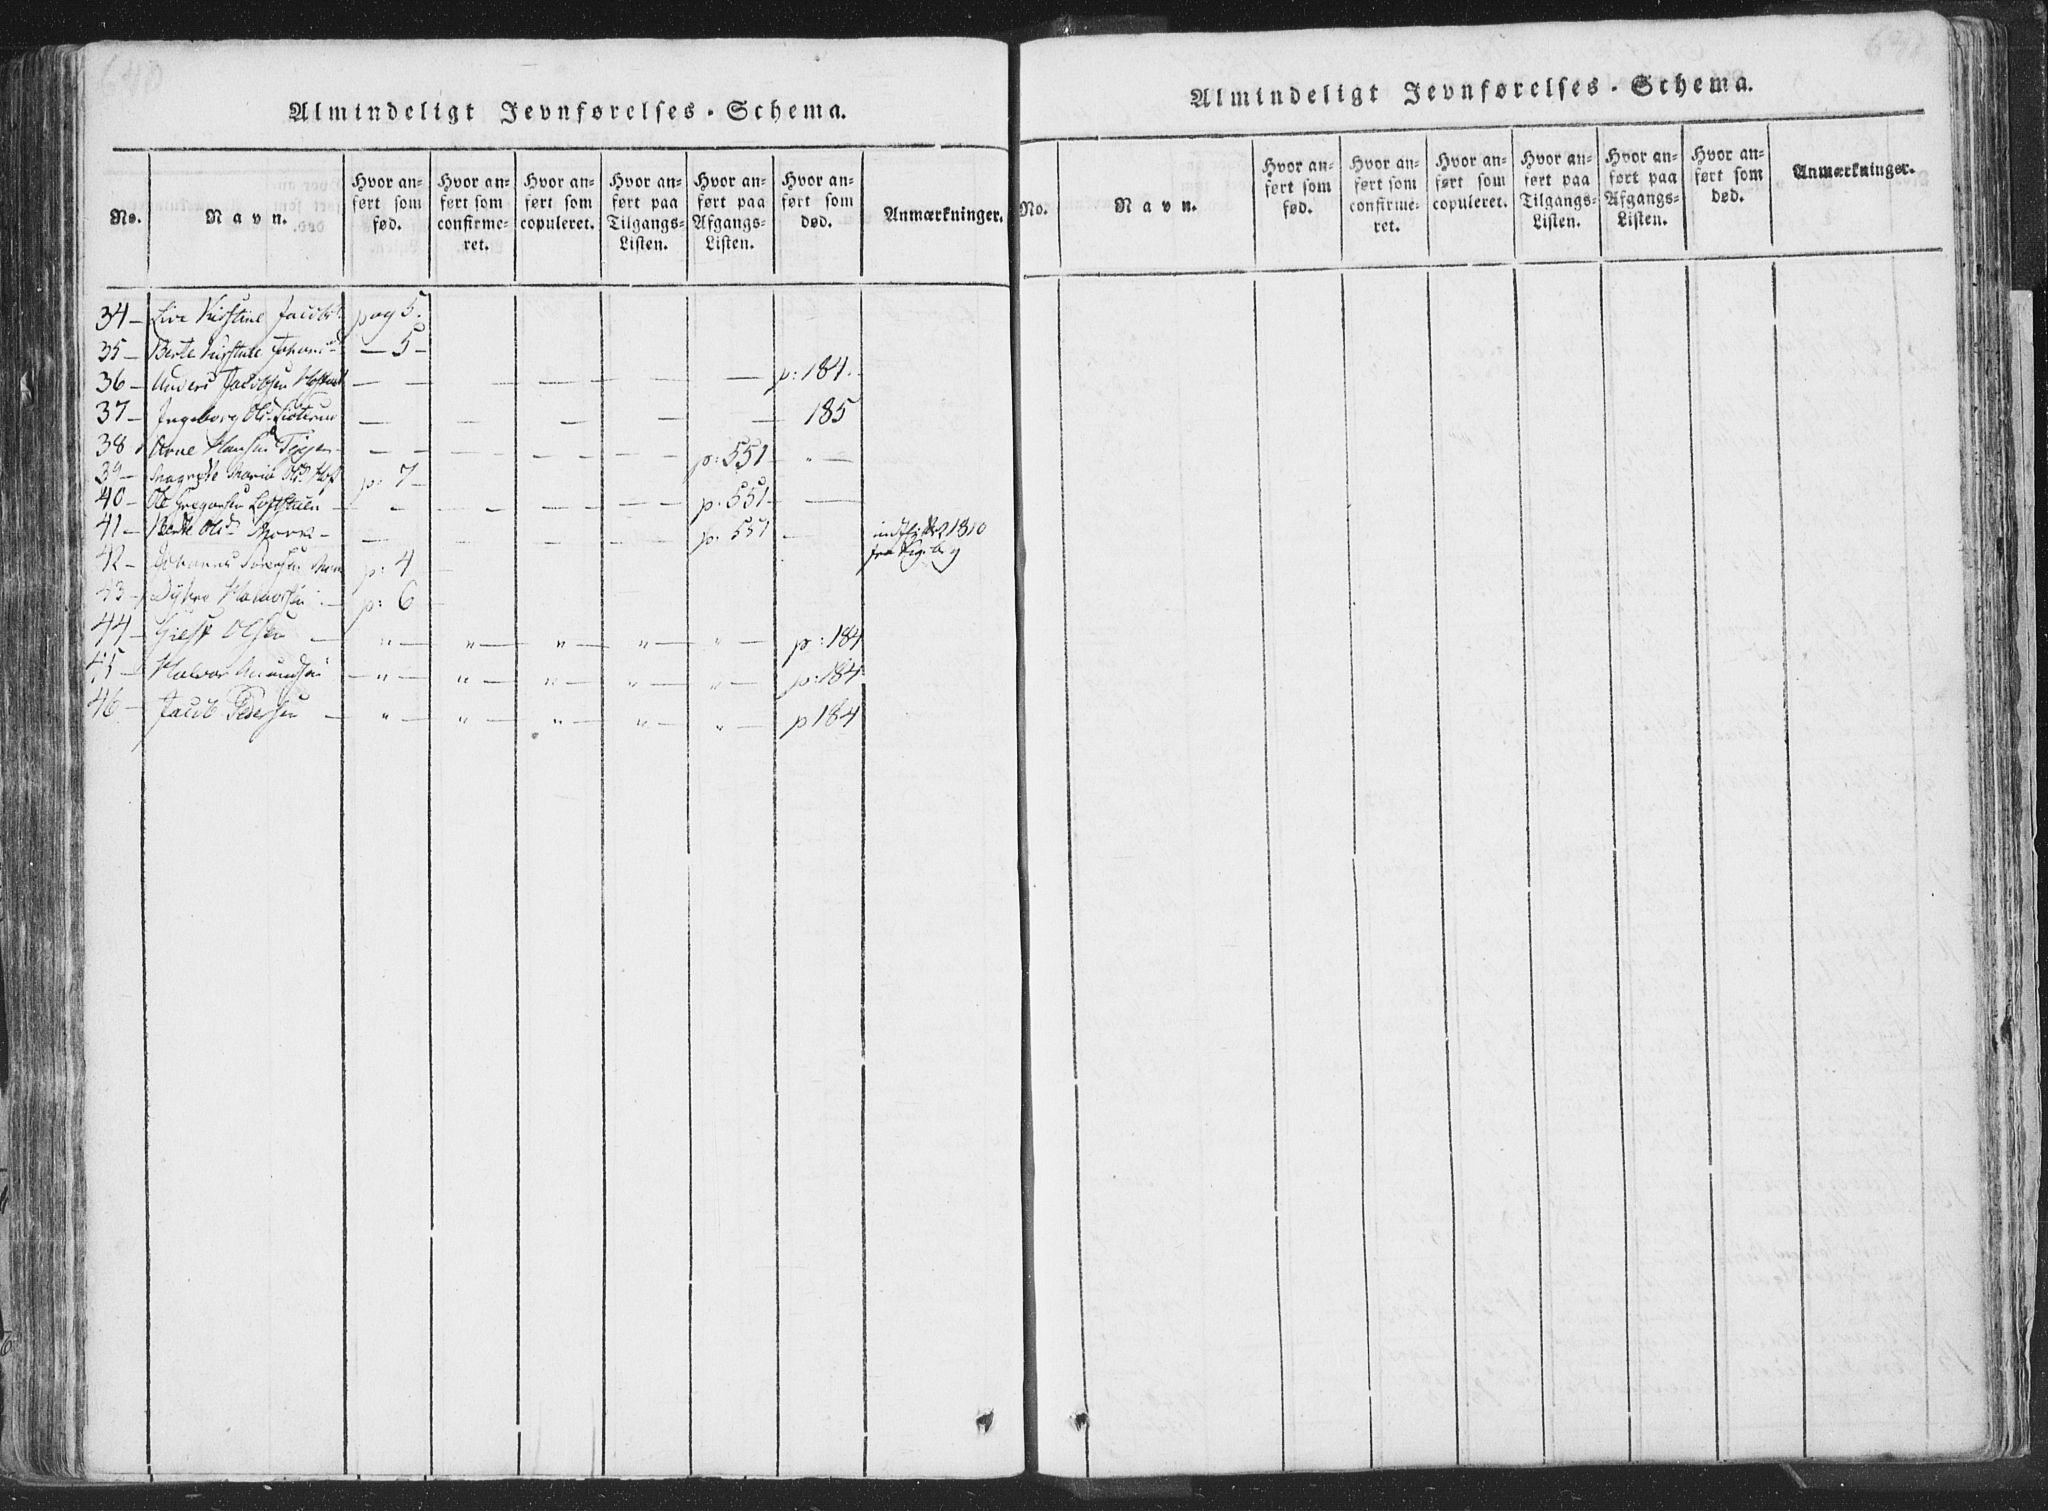 640
Almindeligt Jevnførelses-Schema.
No. Navn. Hvor anført som fød. Hvor anført som confirmeret. Hvor anført som copuleret. Hvor anført paa Tilgangs-Listen. Hvor anført paa Afgangs-Listen. Hvor anført som død. Anmærkninger.
34 – Live Kirstine Jacobsd. pag 5.
35 – Berte Kirstine Johansd. — 5 –
36 – Anders Jacobsen — — — — — — p: 184.
37 – Ingeborg Olsd. — — — — — 185
38 Arne Hansen — — — — — p: 551 – " —
39 – Magrete Maria Olsd. p: 7 –
40 – Ole Gregersen — – – — — p: 551 – —
41 – Berte Olsd. — — — — — p. 551 — 1810
42 – Johannes p: 4 —
43 – Halvorsen – p: 6 —
44 – Olsen — " — " — " — " — " — p: 184
45 – Halvor Amundsen — " — " — " — " — " — p: 184
46 – Jacob Pedersen — " — " — " — " — " — p 184
Almindeligt Jevnførelses-Schema.
No. Navn. Hvor anført som fød. Hvor anført som confirmeret. Hvor anført som copuleret. Hvor anført paa Tilgangs-Listen. Hvor anført paa Afgangs-Listen. Hvor anført som død. Anmærkninger.